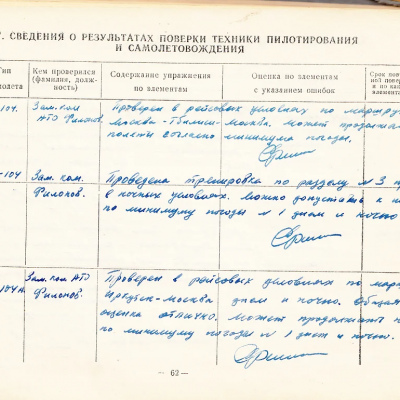 . СВЕДЕНИЯ О РЕЗУЛЬТАТАХ ПОВЕРКИ ТЕХНИКИ ПИЛОТИРОВАНИЯ
И САМОЛЕТОВОЖДЕНИЯ
Тип
молета
Кем проверялся
(фамилия, долж-
ность)
Содержание упражнения
по элементам
Оценка по элементам
с указанием ошибок
Срок
ной повер
и по ка
элемента
104.
Зам. ком
АТО Филонов.
Проверен в рейсовых условиях по маршру
Москва - Тбилиси - Москва. может продолжать
полеты согласно минимума погоды.
-104
Зам. ком.
Филонов.
Проведена тренировка по разделу №3 п
в ночных условиях. Можно допустить к п
по минимуму погоды №1 днем и ночью
104А.
Зам. ком АТО
Филонов.
Проверен в рейсовых условиях по мар
Иркутск-Москва днем и ночью. Общая
оценка отлично. может продолжать п
по минимуму погоды №1 днем и ночью.
— 62 —